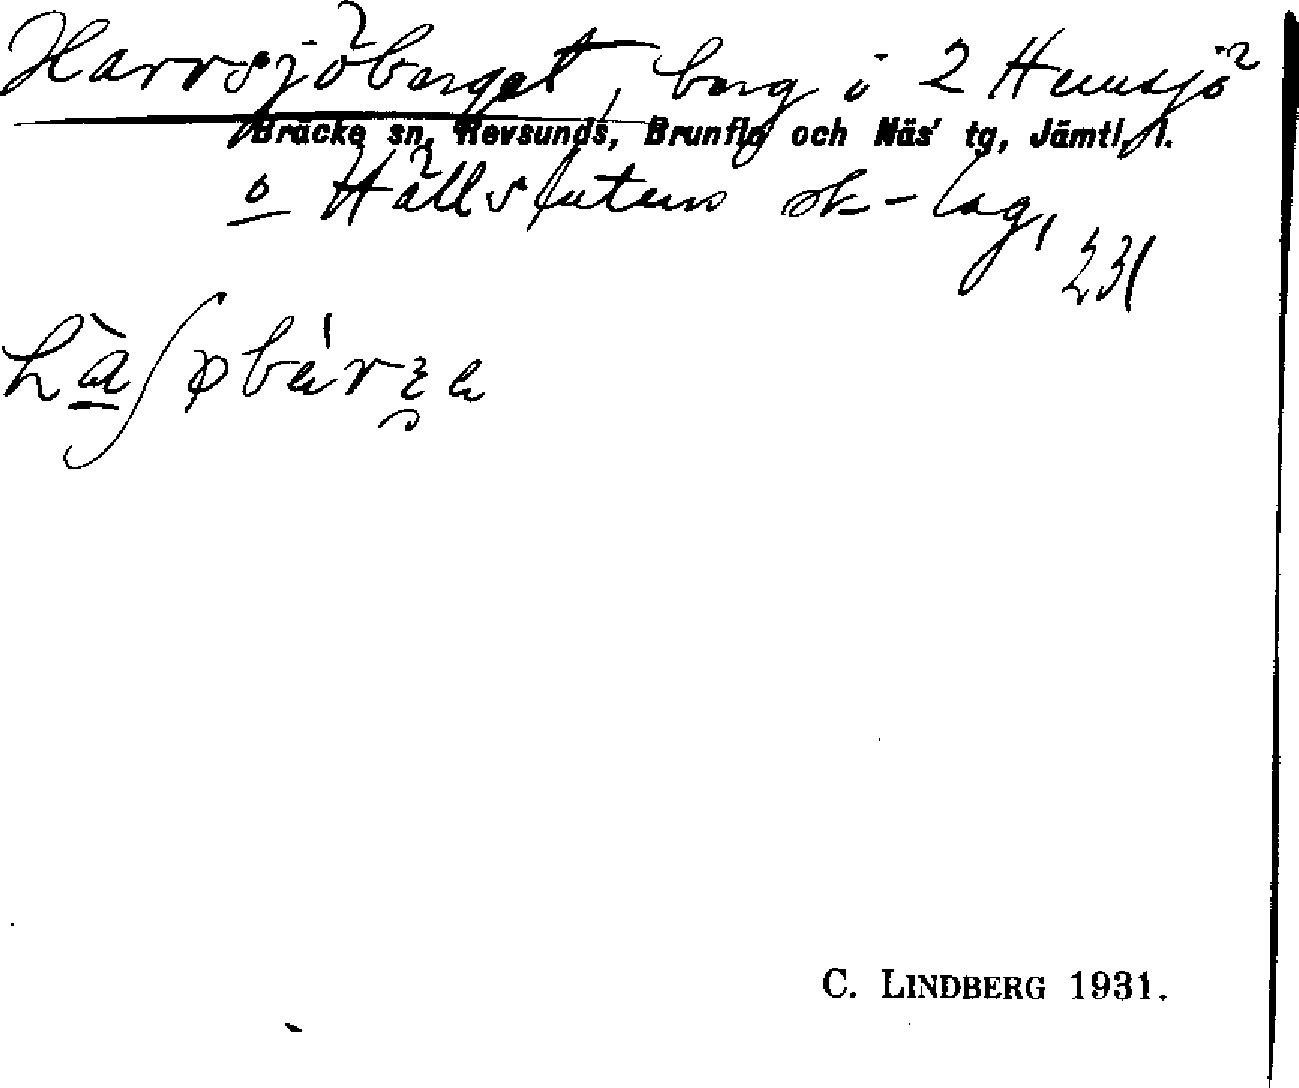 Harrsjöberget, berg i 2 Hunsjö
Bräcke sn, Revsunds, Brunflo och Näs' tg, Jämtl. l.
o Hällslåtens sk-lag,
231
C. LINDBERG 1931.